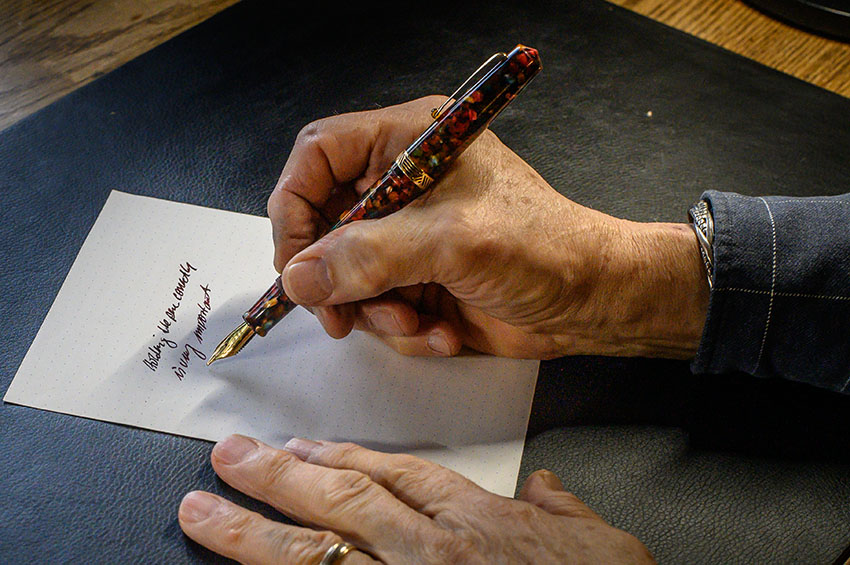 Holding the pen correctly
is very important